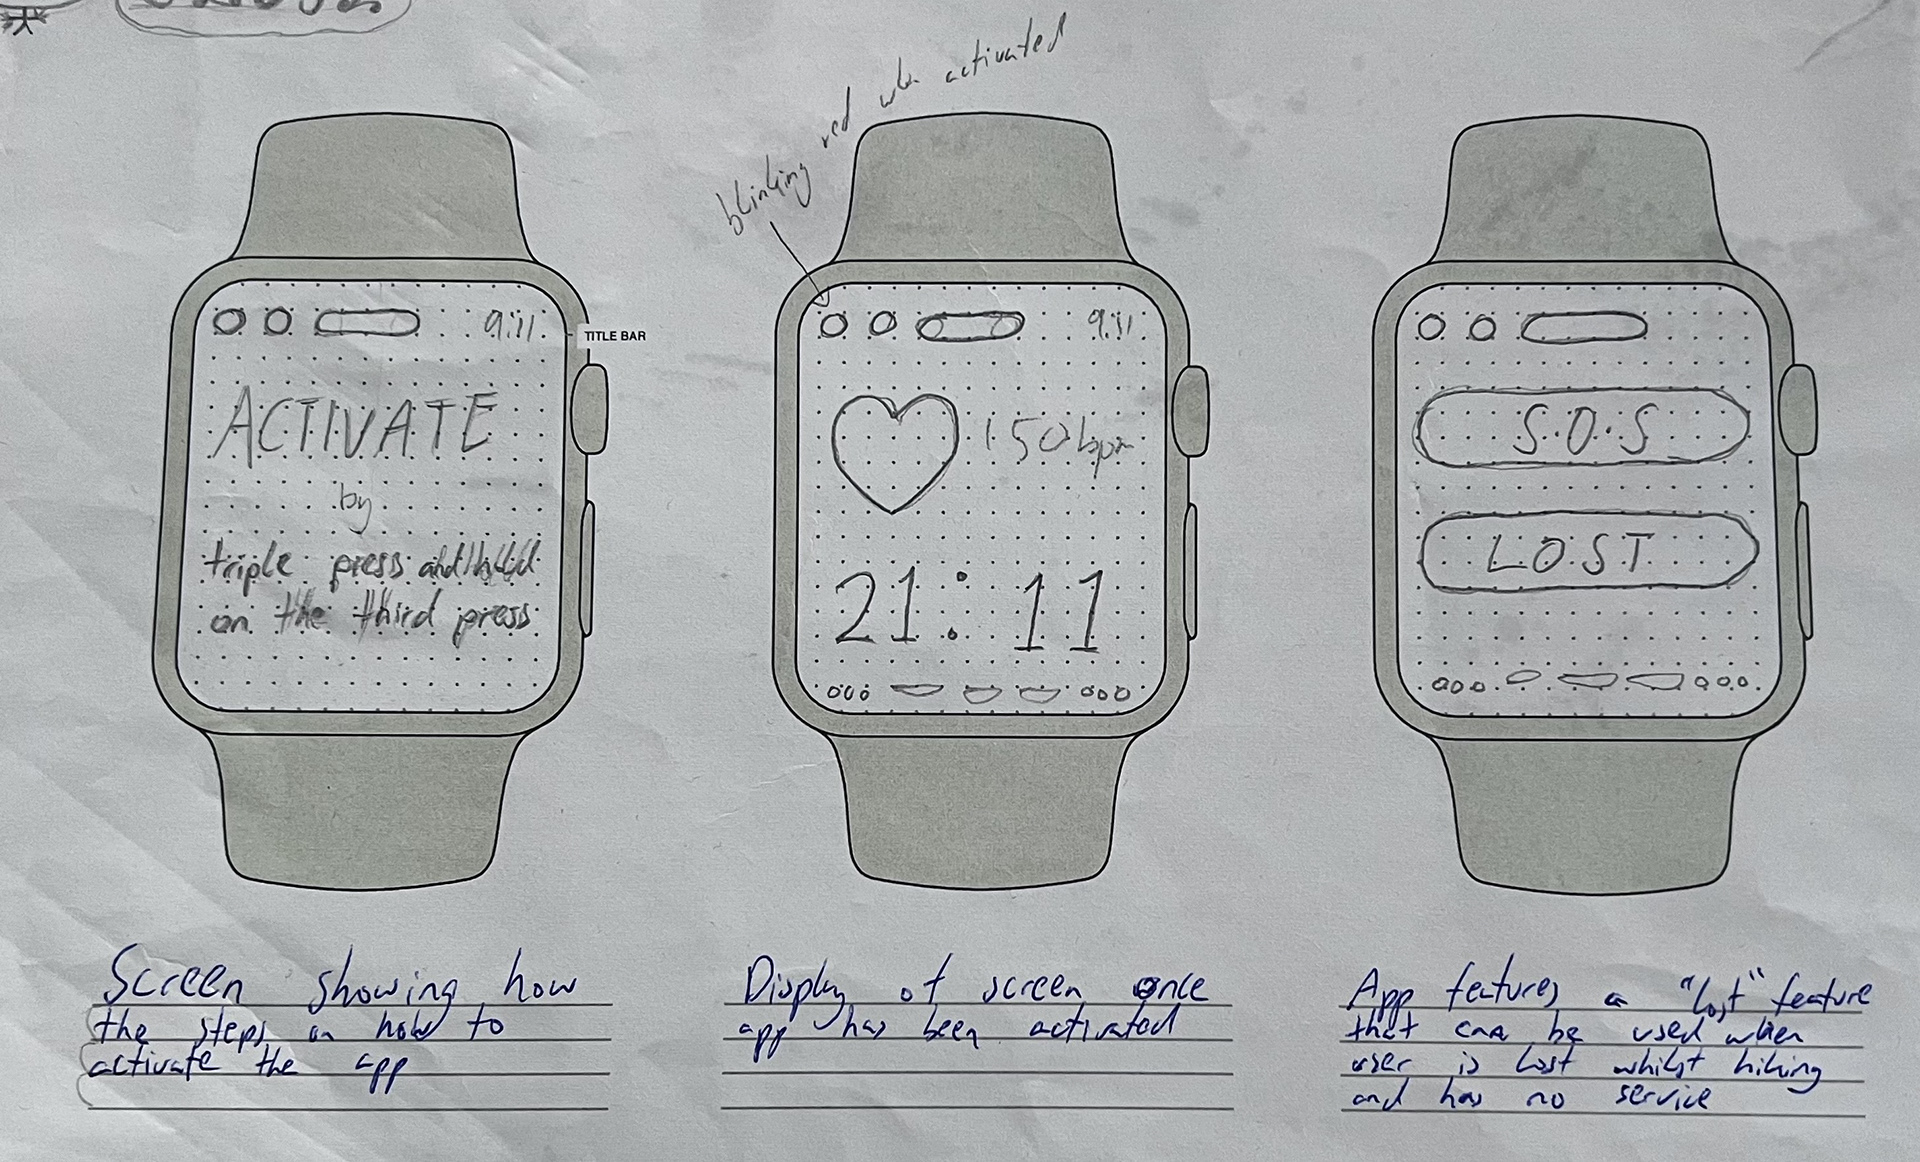 blinking red when activated
9:11
TITLE BAR
ACTIVATE
by
triple press and hold
on the third press
9:11
150 bpm
21:11
S.O.S
LOST
Screen showing how
the steps on how to
activate the app
Display of screen once
app has been activated
App features a "lost" feature
that can be used when
user is lost whilst hiking
and has no service